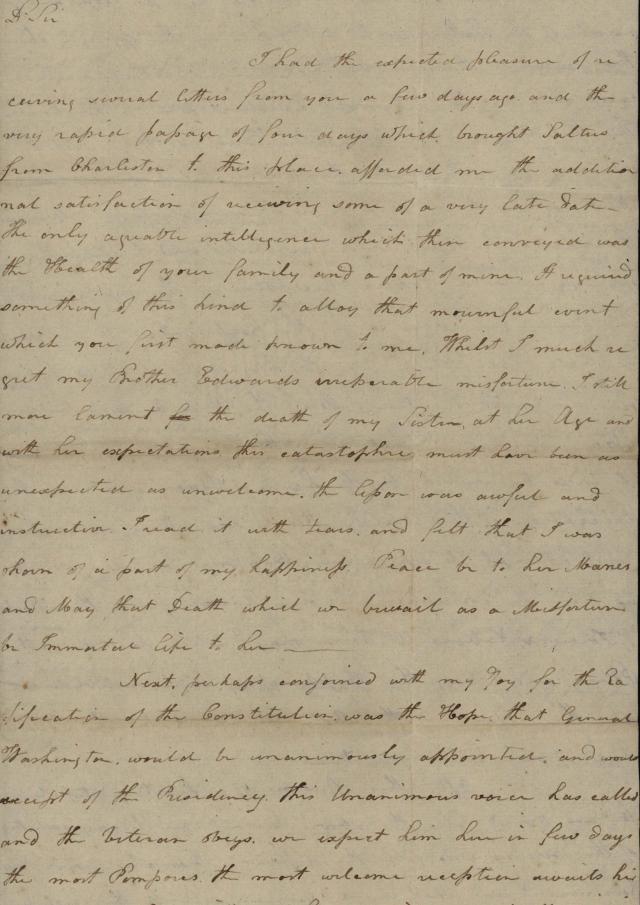 Dr. Sir
I had the expected pleasure of re
ceiving several letters from you a few days ago and the
very rapid passage of four days which brought Saltus
from Charleston to this place. afforded me the additio
nal satisfaction of receiving some of a very late Date
The only agreable intelligence which then conveyed was
the Health of your family and a part of mine. It required
something of this kind to alloy that mournful event
which you first made known to me. Whilst I much re
gret my Brother Edwards irreperable misfortune. I still
more lament the death of my Sister. at her Age and
with her expectations this catastrophe must have been as
unexpected as unwelcome. the lesson was awful and
instructive. I read it with tears. and felt that I was
shorn of a part of my happiness. Peace be to her Manes
and May that Death which we bewail as a Misfortune
be Immortal life to her
Next. perhaps conjoined with my Joy for the Ra
tification of the Constitution. was the Hope. that General
Washington. would be unanimously appointed. and would
accept of the Presidency. this Unanimous voice has called
and the Veteran obeys. we expect him here in few days
the most Pompous. the most welcome reception awaits his